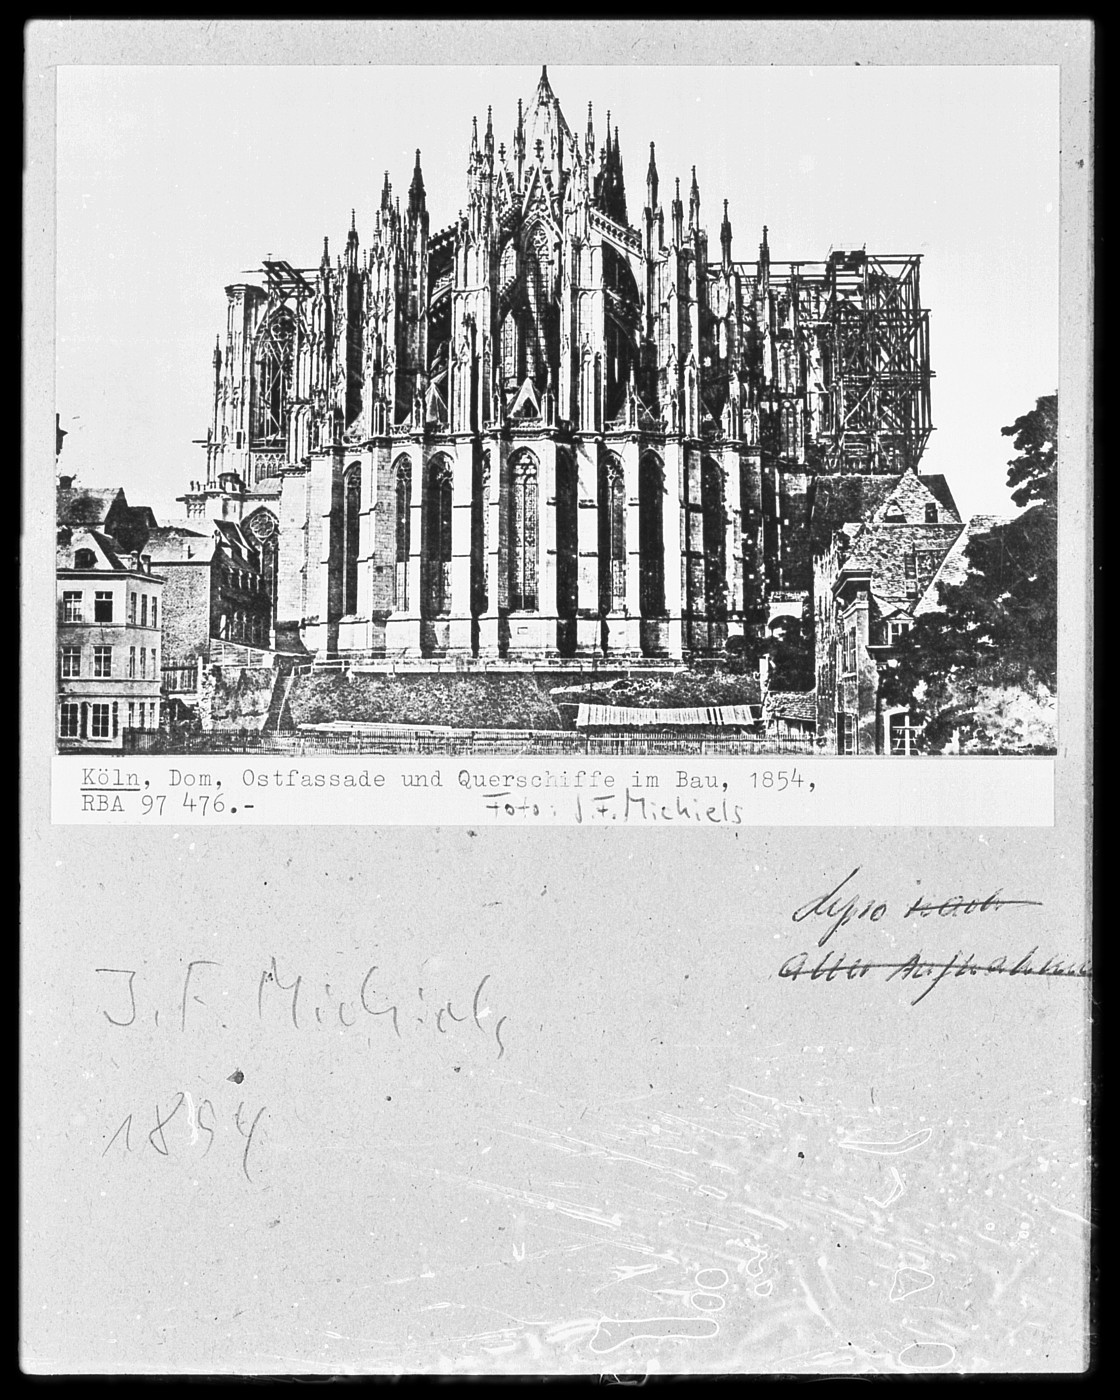 Köln, Dom, Ostfassade und Querschiffe im Bau, 1854,
RBA 97 476.-
Foto: J.F. Michiels
Repro nach
alter Aufnahme
J. F. Michiels
1854